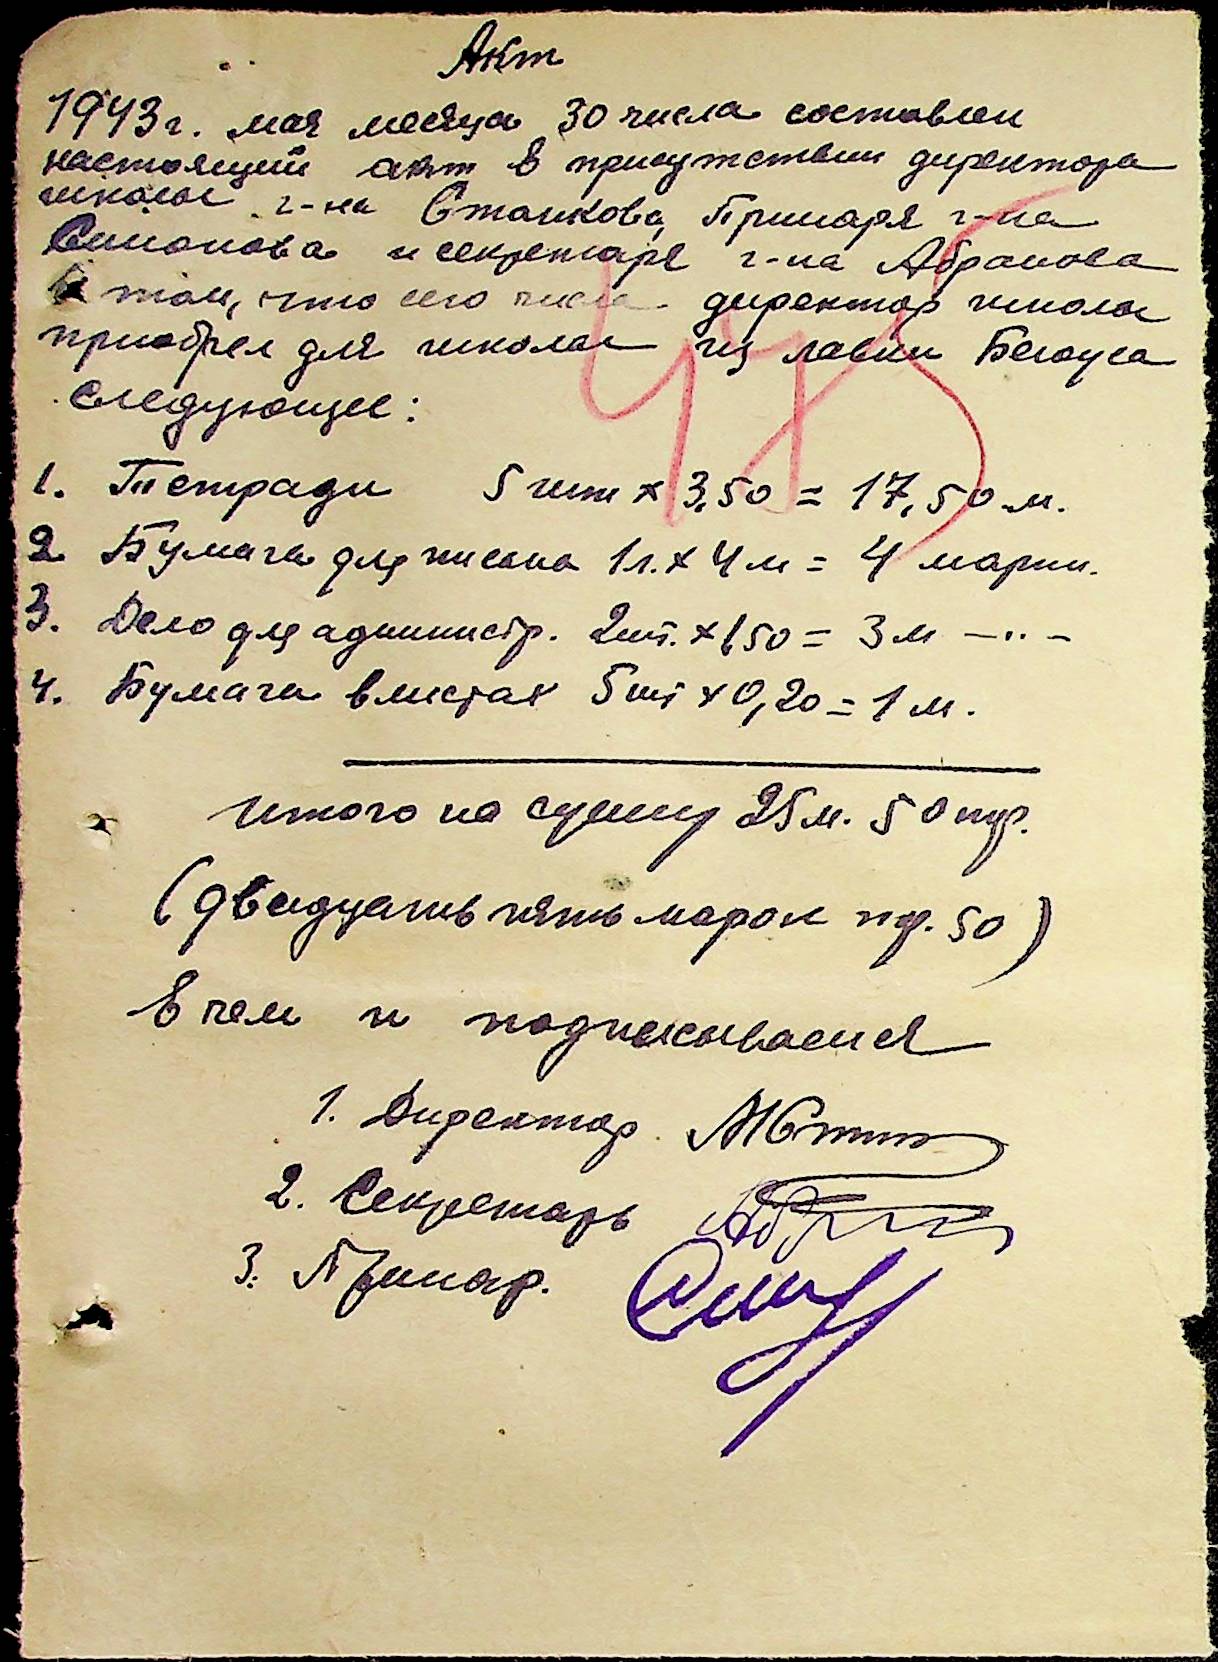 Акт
1943 г. мая месяца 30 числа составлен
настоящий акт в присутствии директора
школы г-на Станкова, Примаря г-на
Симонова и секретаря г-на Абрамова
в том, что сего числа директор школы
приобрел для школы из лавки Белоуса
следующее:
1. Тетради 5 шт х 3,50 = 17,50 м.
2 Бумага для письма 1 л. х 4 м = 4 марки.
3. Дело для администр. 2 шт. х 1,50 = 3 м —"—
4. Бумага в листах 5 шт х 0,20 = 1 м.
Итого на сумму 25 м. 50 пф.
(двадцать пять марок пф. 50)
В чем и подписываемся
1. Директор
2. Секретарь
3. Примар.
45